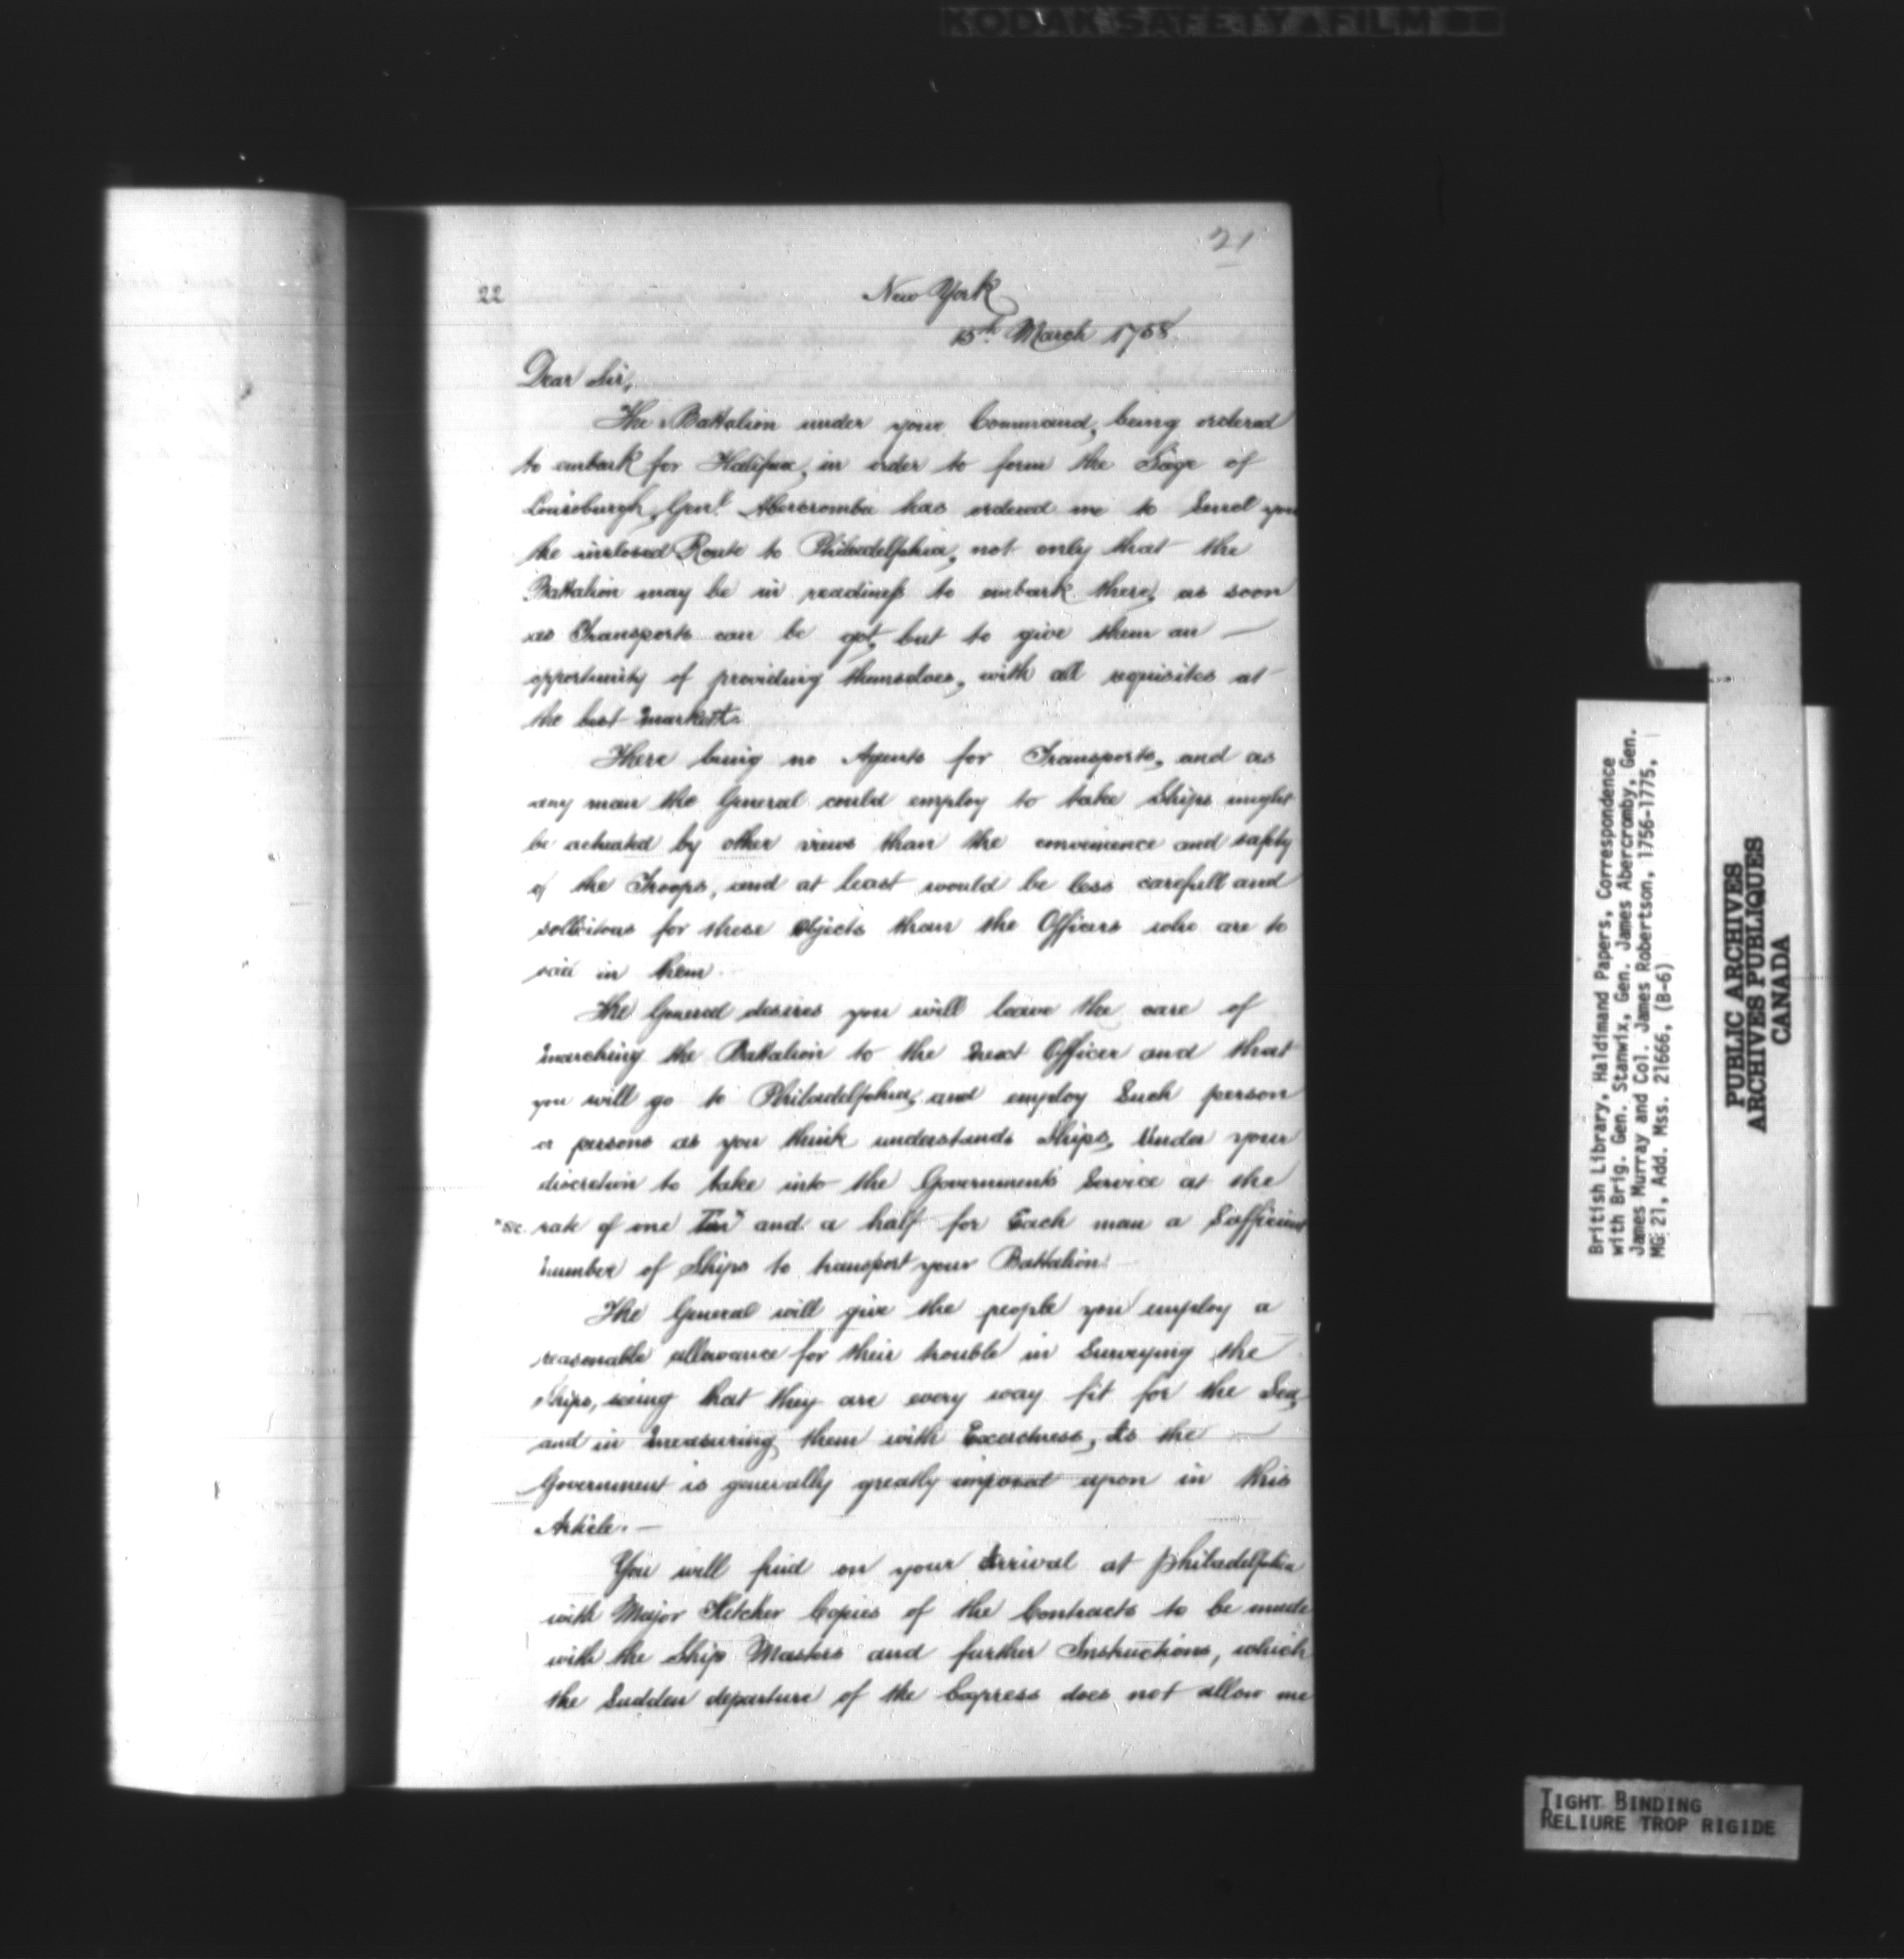 KODAK SAFETY FILM
21
22
New York
15th March 1758
Dear Sir,
The Battalion under your Command, being ordered
to embark for Halifax, in order to form the Siege of
Louisburgh, Genl. Abercrombie has ordered me to Send you
the inclosed Route to Philadelphia, not only that the
Battalion may be in readiness to embark there, as soon
as Transports can be got, but to give them an —
opportunity of providing themselves, with all requisites at
the best market.
There being no Agents for Transports, and as
any man the General could employ to take Ships might
be actuated by other views than the convenience and safety
of the Troops, and at least would be less carefull and
sollicitous for these objects than the Officers who are to
sail in them.
The General desires you will leave the care of
marching the Battalion to the next Officer and that
you will go to Philadelphia, and employ Such person
or persons as you think understands Ships, Under your
discretion to take into the Governments Service at the
"Sic. rate of one Ton" and a half for Each man a Sufficient
number of Ships to transport your Battalion. —
The General will give the people you employ a
reasonable allowance for their trouble in Surveying the
Ships, seeing that they are every way fit for the Sea,
and in measuring them with Exactness, As the —
Government is generally greatly imposed upon in this
Article. —
You will find on your Arrival at philadelphia
with Major Fletcher Copies of the Contracts to be made
with the Ship Masters and further Instructions, which
the Sudden departure of the Express does not allow me
British Library, Haldimand Papers, Correspondence
with Brig. Gen. Stanwix, Gen. James Abercromby, Gen.
James Murray and Col. James Robertson, 1756-1775,
MG 21, Add. Mss. 21666, (B-6)
PUBLIC ARCHIVES
ARCHIVES PUBLIQUES
CANADA
TIGHT BINDING
RELIURE TROP RIGIDE